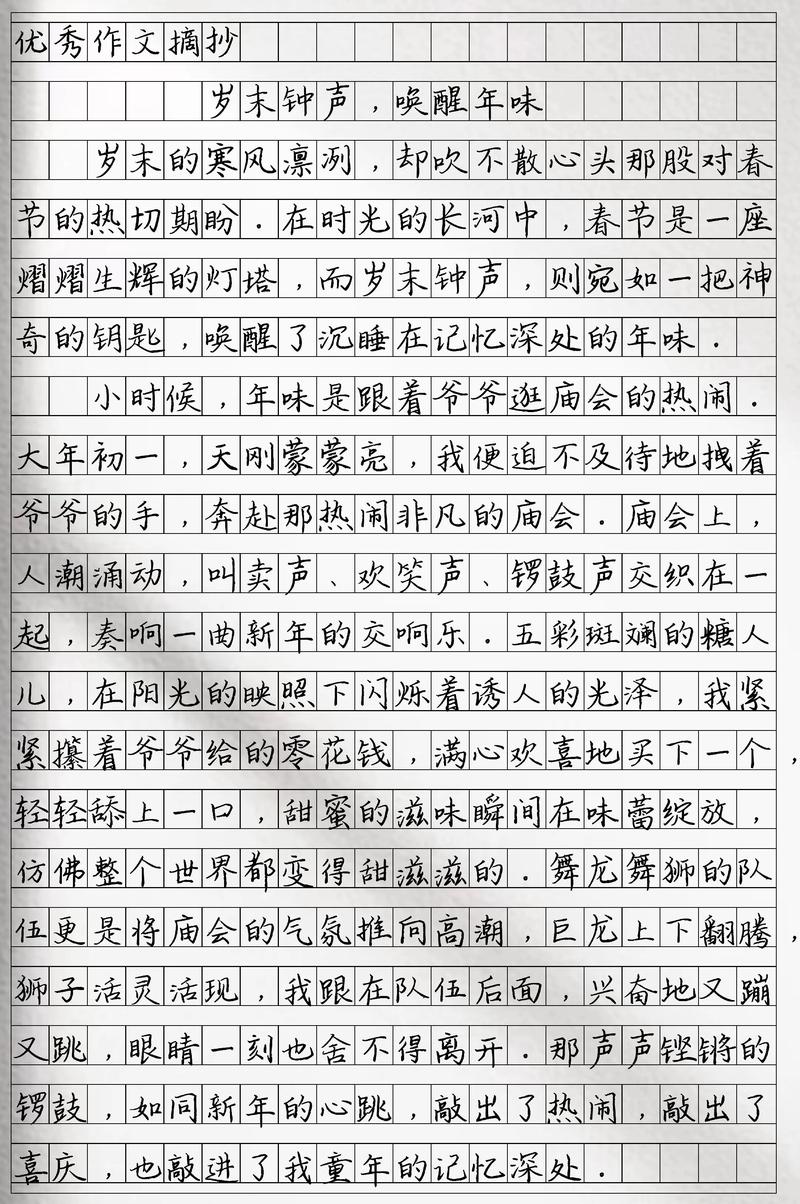 优秀作文摘抄
岁末钟声，唤醒年味
岁末的寒风凛冽，却吹不散心头那股对春
节的热切期盼．在时光的长河中，春节是一座
熠熠生辉的灯塔，而岁末钟声，则宛如一把神
奇的钥匙，唤醒了沉睡在记忆深处的年味．
小时候，年味是跟着爷爷逛庙会的热闹．
大年初一，天刚蒙蒙亮，我便迫不及待地拽着
爷爷的手，奔赴那热闹非凡的庙会．庙会上，
人潮涌动，叫卖声、欢笑声、锣鼓声交织在一
起，奏响一曲新年的交响乐．五彩斑斓的糖人
儿，在阳光的映照下闪烁着诱人的光泽，我紧
紧攥着爷爷给的零花钱，满心欢喜地买下一个，
轻轻舔上一口，甜蜜的滋味瞬间在味蕾绽放，
仿佛整个世界都变得甜滋滋的．舞龙舞狮的队
伍更是将庙会的气氛推向高潮，巨龙上下翻腾，
狮子活灵活现，我跟在队伍后面，兴奋地又蹦
又跳，眼睛一刻也舍不得离开．那声声铿锵的
锣鼓，如同新年的心跳，敲出了热闹，敲出了
喜庆，也敲进了我童年的记忆深处．